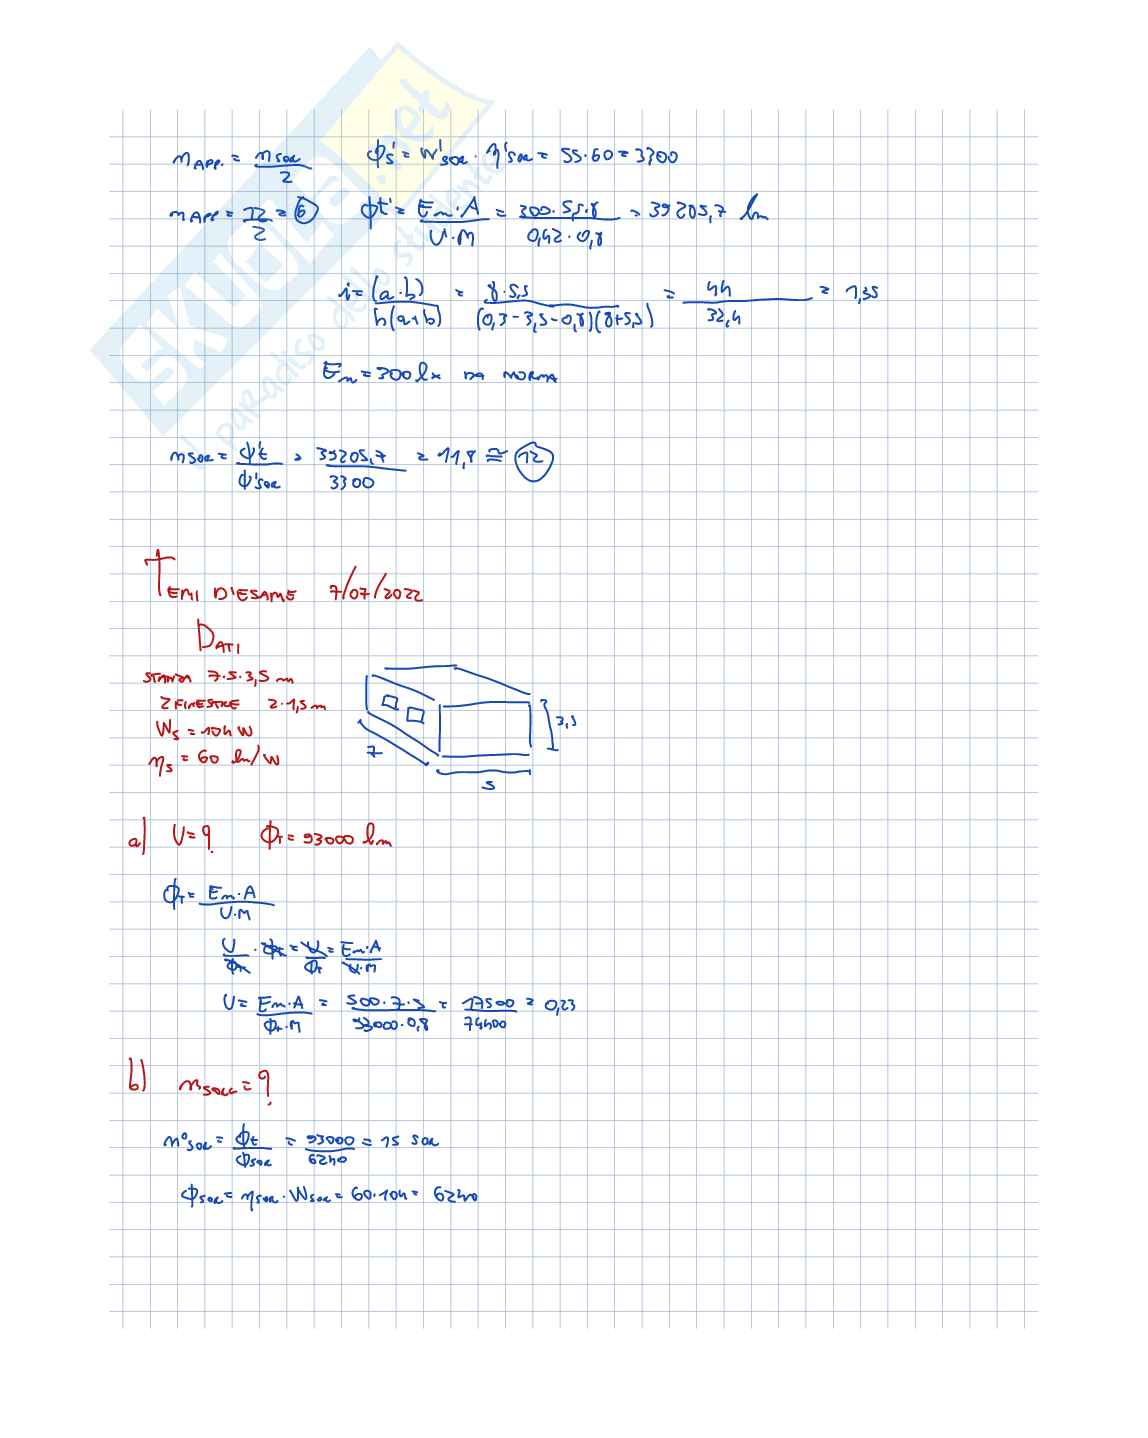 n APP. = n SOR / 2    Φ's = W'SOR · η'SOR = 55·60 = 3300
n APP = 12 / 2 = 6    Φt' = Em·A / U·M = 300·5,5·8 / 0,42·0,8 = 39205,7 lm
i = (a·b) / h(a+b) = 8·5,5 / (0,3-3,5-0,8)(8+5,5) = 44 / 32,4 = 1,35
Em = 300 lx DA NORMA
n SOR = Φ't / Φ'SOR = 39205,7 / 3300 = 11,8 ≅ 12
TEMI D'ESAME 7/07/2022
DATI
STANZA 7·5·3,5 m
2 FINESTRE 2·1,5 m
Ws = 104 W
ηs = 60 lm/W
3,5
7
5
a) U = ? ΦT = 93000 lm
ΦT = Em·A / U·M
U / ΦT · ΦT = U / ΦT = Em·A / U·M
U = Em·A / ΦT·M = 500·7·5 / 93000·0,8 = 17500 / 74400 = 0,23
b) n SORG = ?
n° SOR = Φt / ΦSOR = 93000 / 6240 = 15 SOR
ΦSOR = ηSOR · WSOR = 60·104 = 6240
SKUOLA.net
il paradiso dello studente